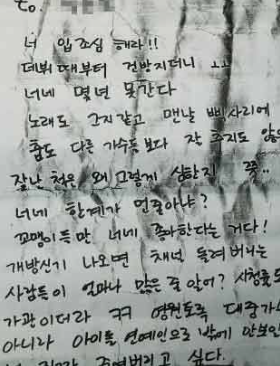 To.
너 입조심 해라!!
데뷔때부터 건방지더니 ㅗㅗ
너네 몇년 못간다
노래도 그지같고 맨날 삐사리에
춤도 다른 가수들보다 잘 추지도 않은
잘난 척은 왜 그렇게 심한지 쯧..
너네 한계가 먼줄아냐?
꼬맹이들만 너네 좋아한다는 거다!
개방신기 나오면 채널 돌려버리는
사람들이 얼마나 많은 줄 알어? 시청률도
가관이더라 ㅋㅋ 영원토록 대중가
아니라 아이돌 연예인으로 밖에 안보인
죽여버리고 싶다.